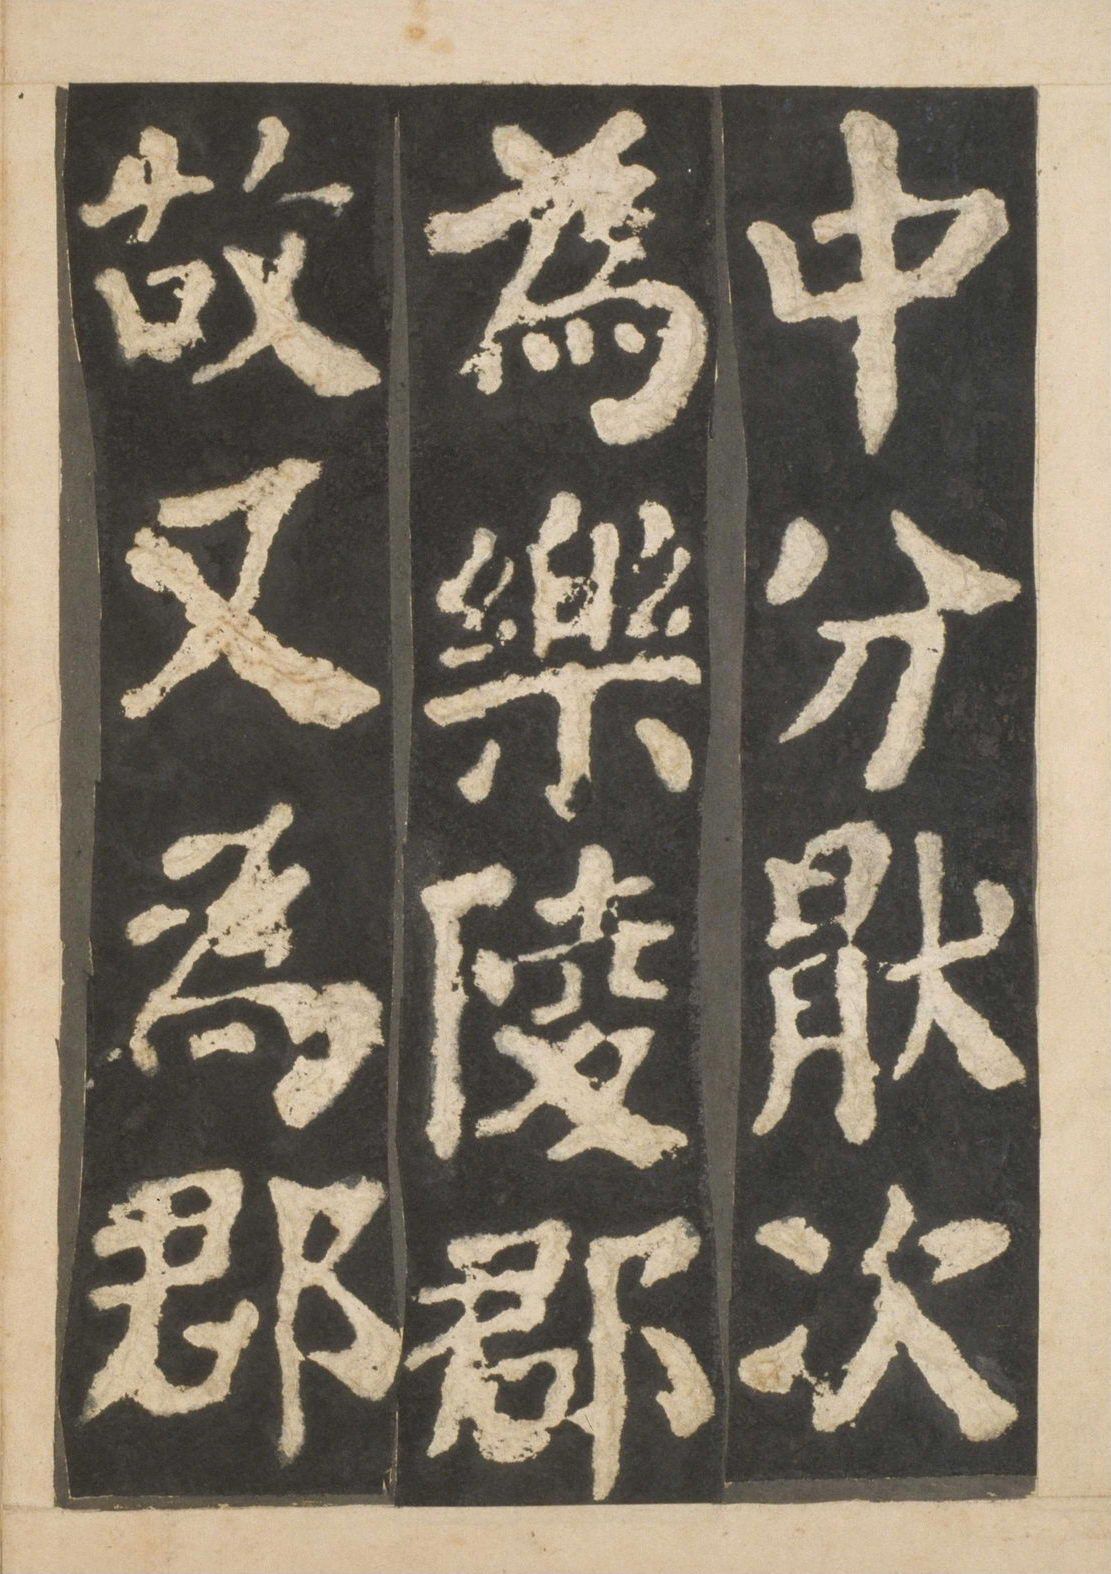 中分猒次
為樂陵郡
故又為郡